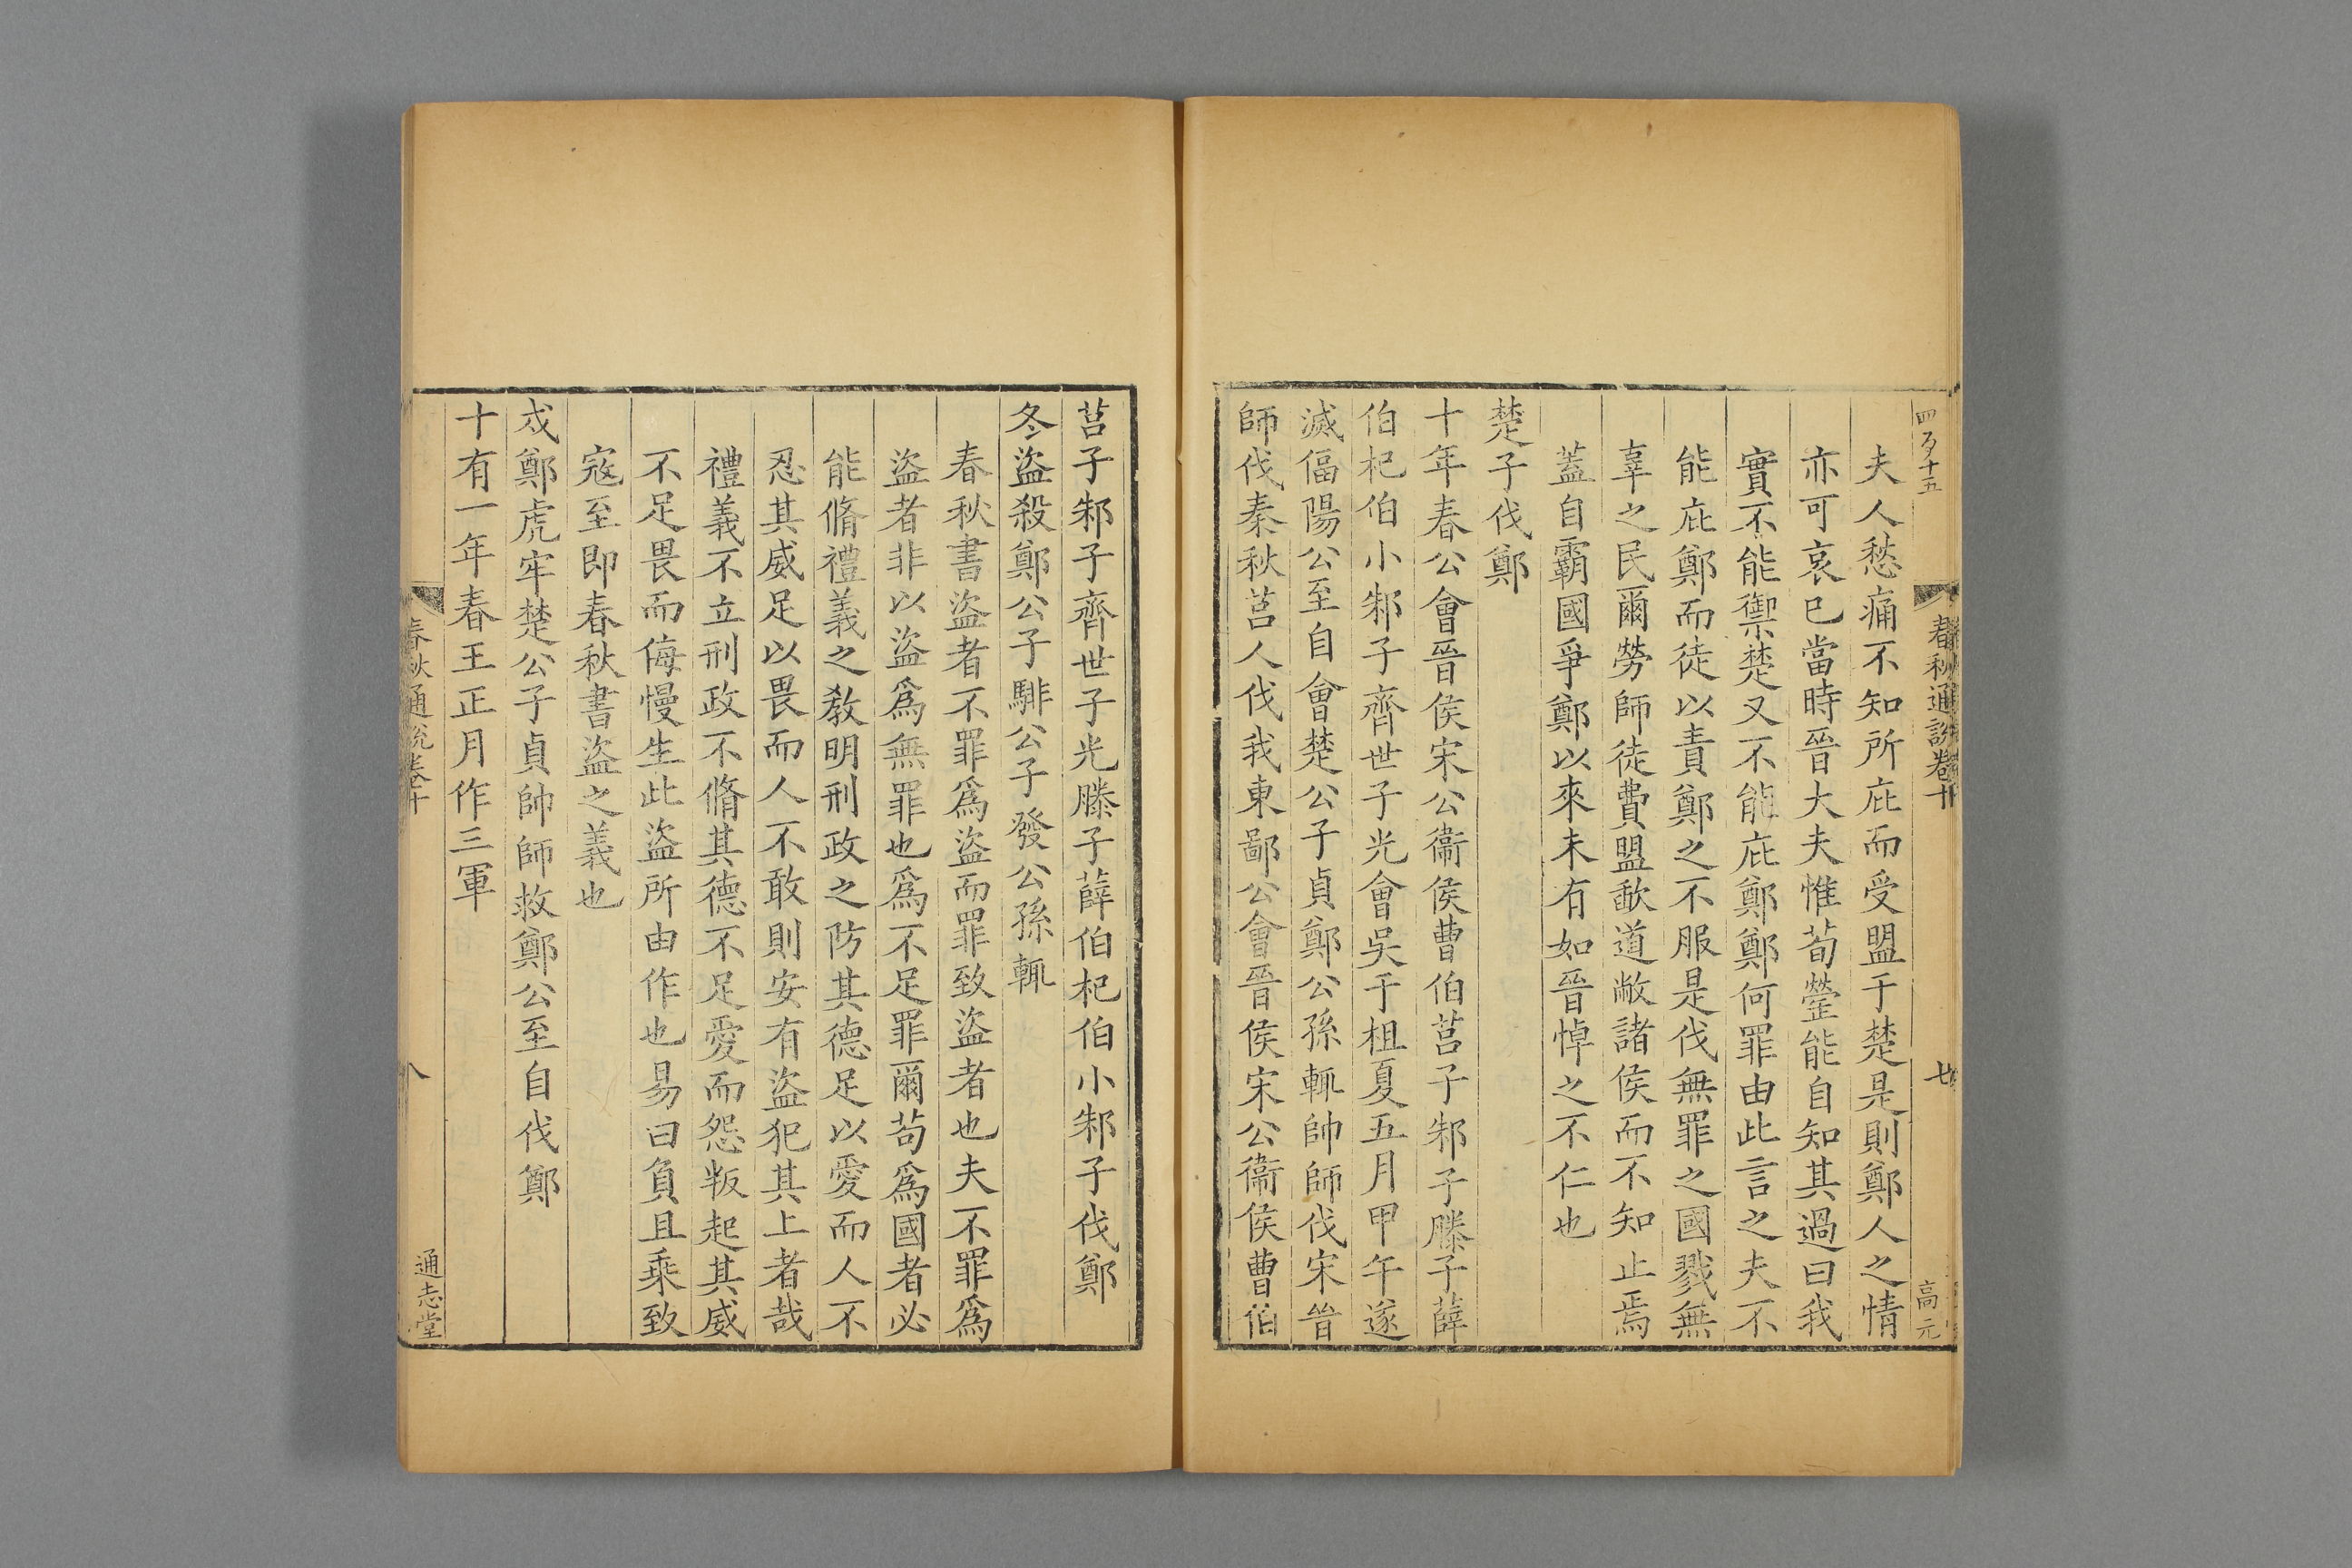 四百十五
春秋通說卷十
七
高元
夫人愁痛不知所庇而受盟于楚是則鄭人之情
亦可哀已當時晉大夫惟荀罃能自知其過曰我
實不能禦楚又不能庇鄭鄭何罪由此言之夫不
能庇鄭而徒以責鄭之不服是伐無罪之國戮無
辜之民爾勞師徒費盟歃道敝諸侯而不知止焉
蓋自霸國爭鄭以來未有如晉悼之不仁也
楚子伐鄭
十年春公會晉侯宋公衞侯曹伯莒子邾子滕子薛
伯杞伯小邾子齊世子光會吳于柤夏五月甲午遂
滅偪陽公至自會楚公子貞鄭公孫輒帥師伐宋晉
師伐秦秋莒人伐我東鄙公會晉侯宋公衞侯曹伯
莒子邾子齊世子光滕子薛伯杞伯小邾子伐鄭
冬盜殺鄭公子騑公子發公孫輒
春秋書盜者不罪爲盜而罪致盜者也夫不罪爲
盜者非以盜爲無罪也爲不足罪爾苟爲國者必
能脩禮義之教明刑政之防其德足以愛而人不
忍其威足以畏而人不敢則安有盜犯其上者哉
禮義不立刑政不脩其德不足愛而怨叛起其威
不足畏而侮慢生此盜所由作也易曰負且乘致
寇至即春秋書盜之義也
戍鄭虎牢楚公子貞帥師救鄭公至自伐鄭
十有一年春王正月作三軍
春秋通說卷十
八
通志堂